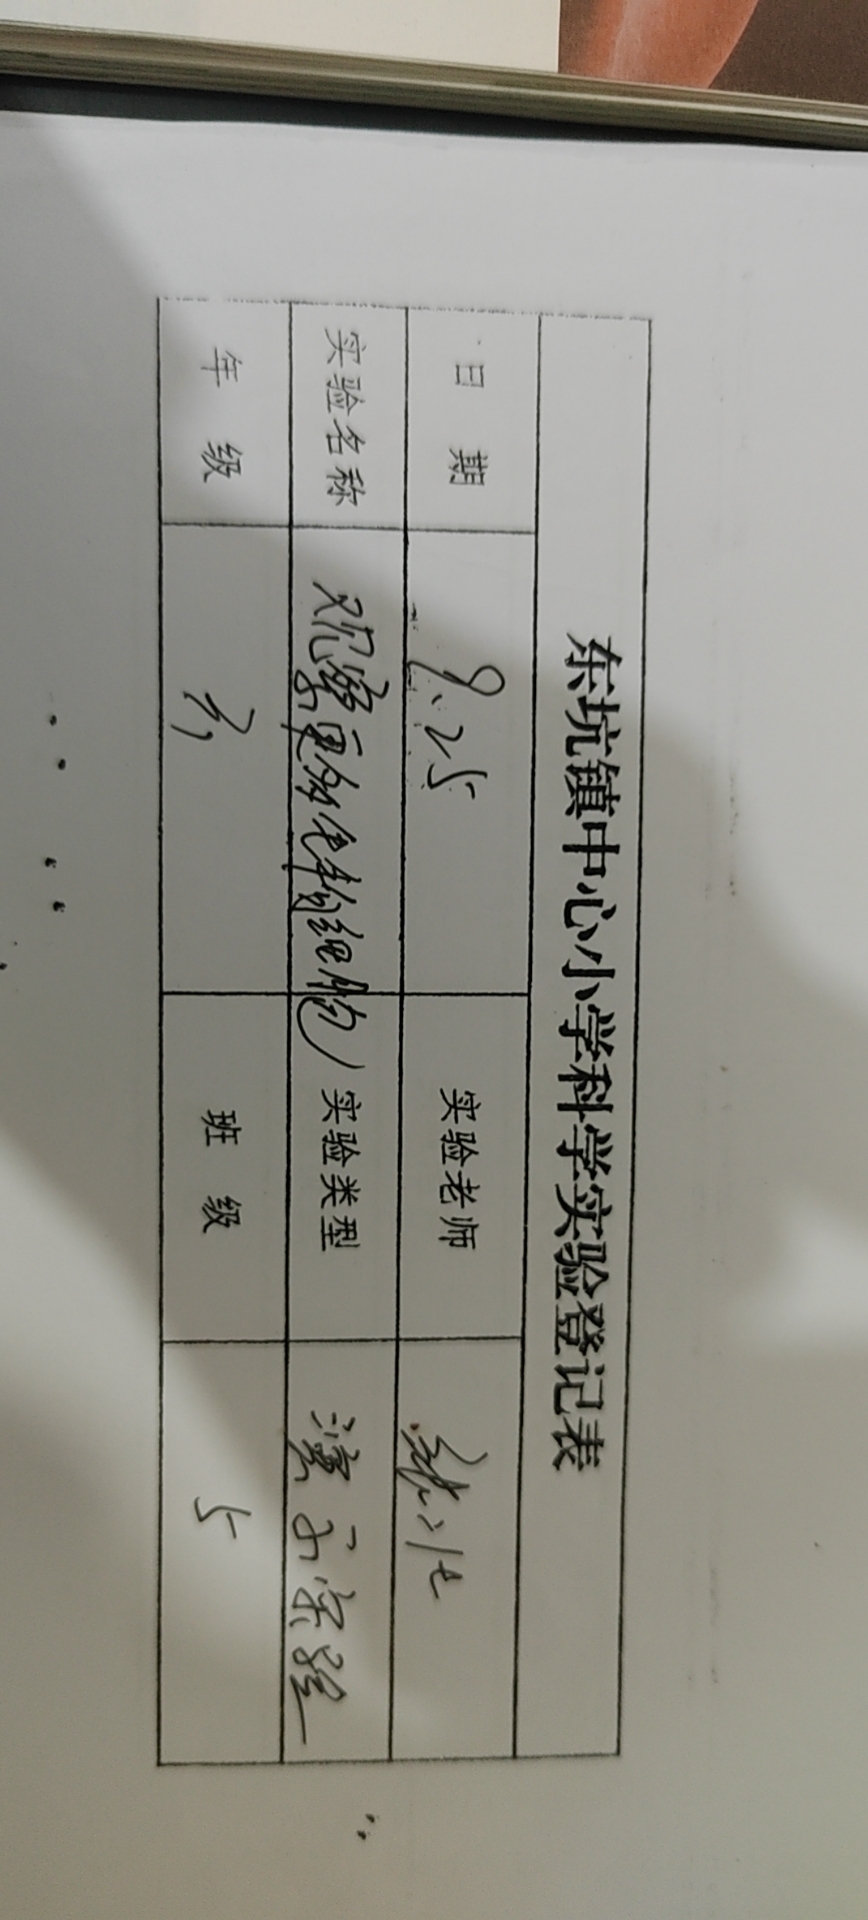 东坑镇中心小学科学实验登记表
日 期 9.25 实验老师
实验名称 观察更多生物的细胞 实验类型 演示实验
年 级 班 级 5